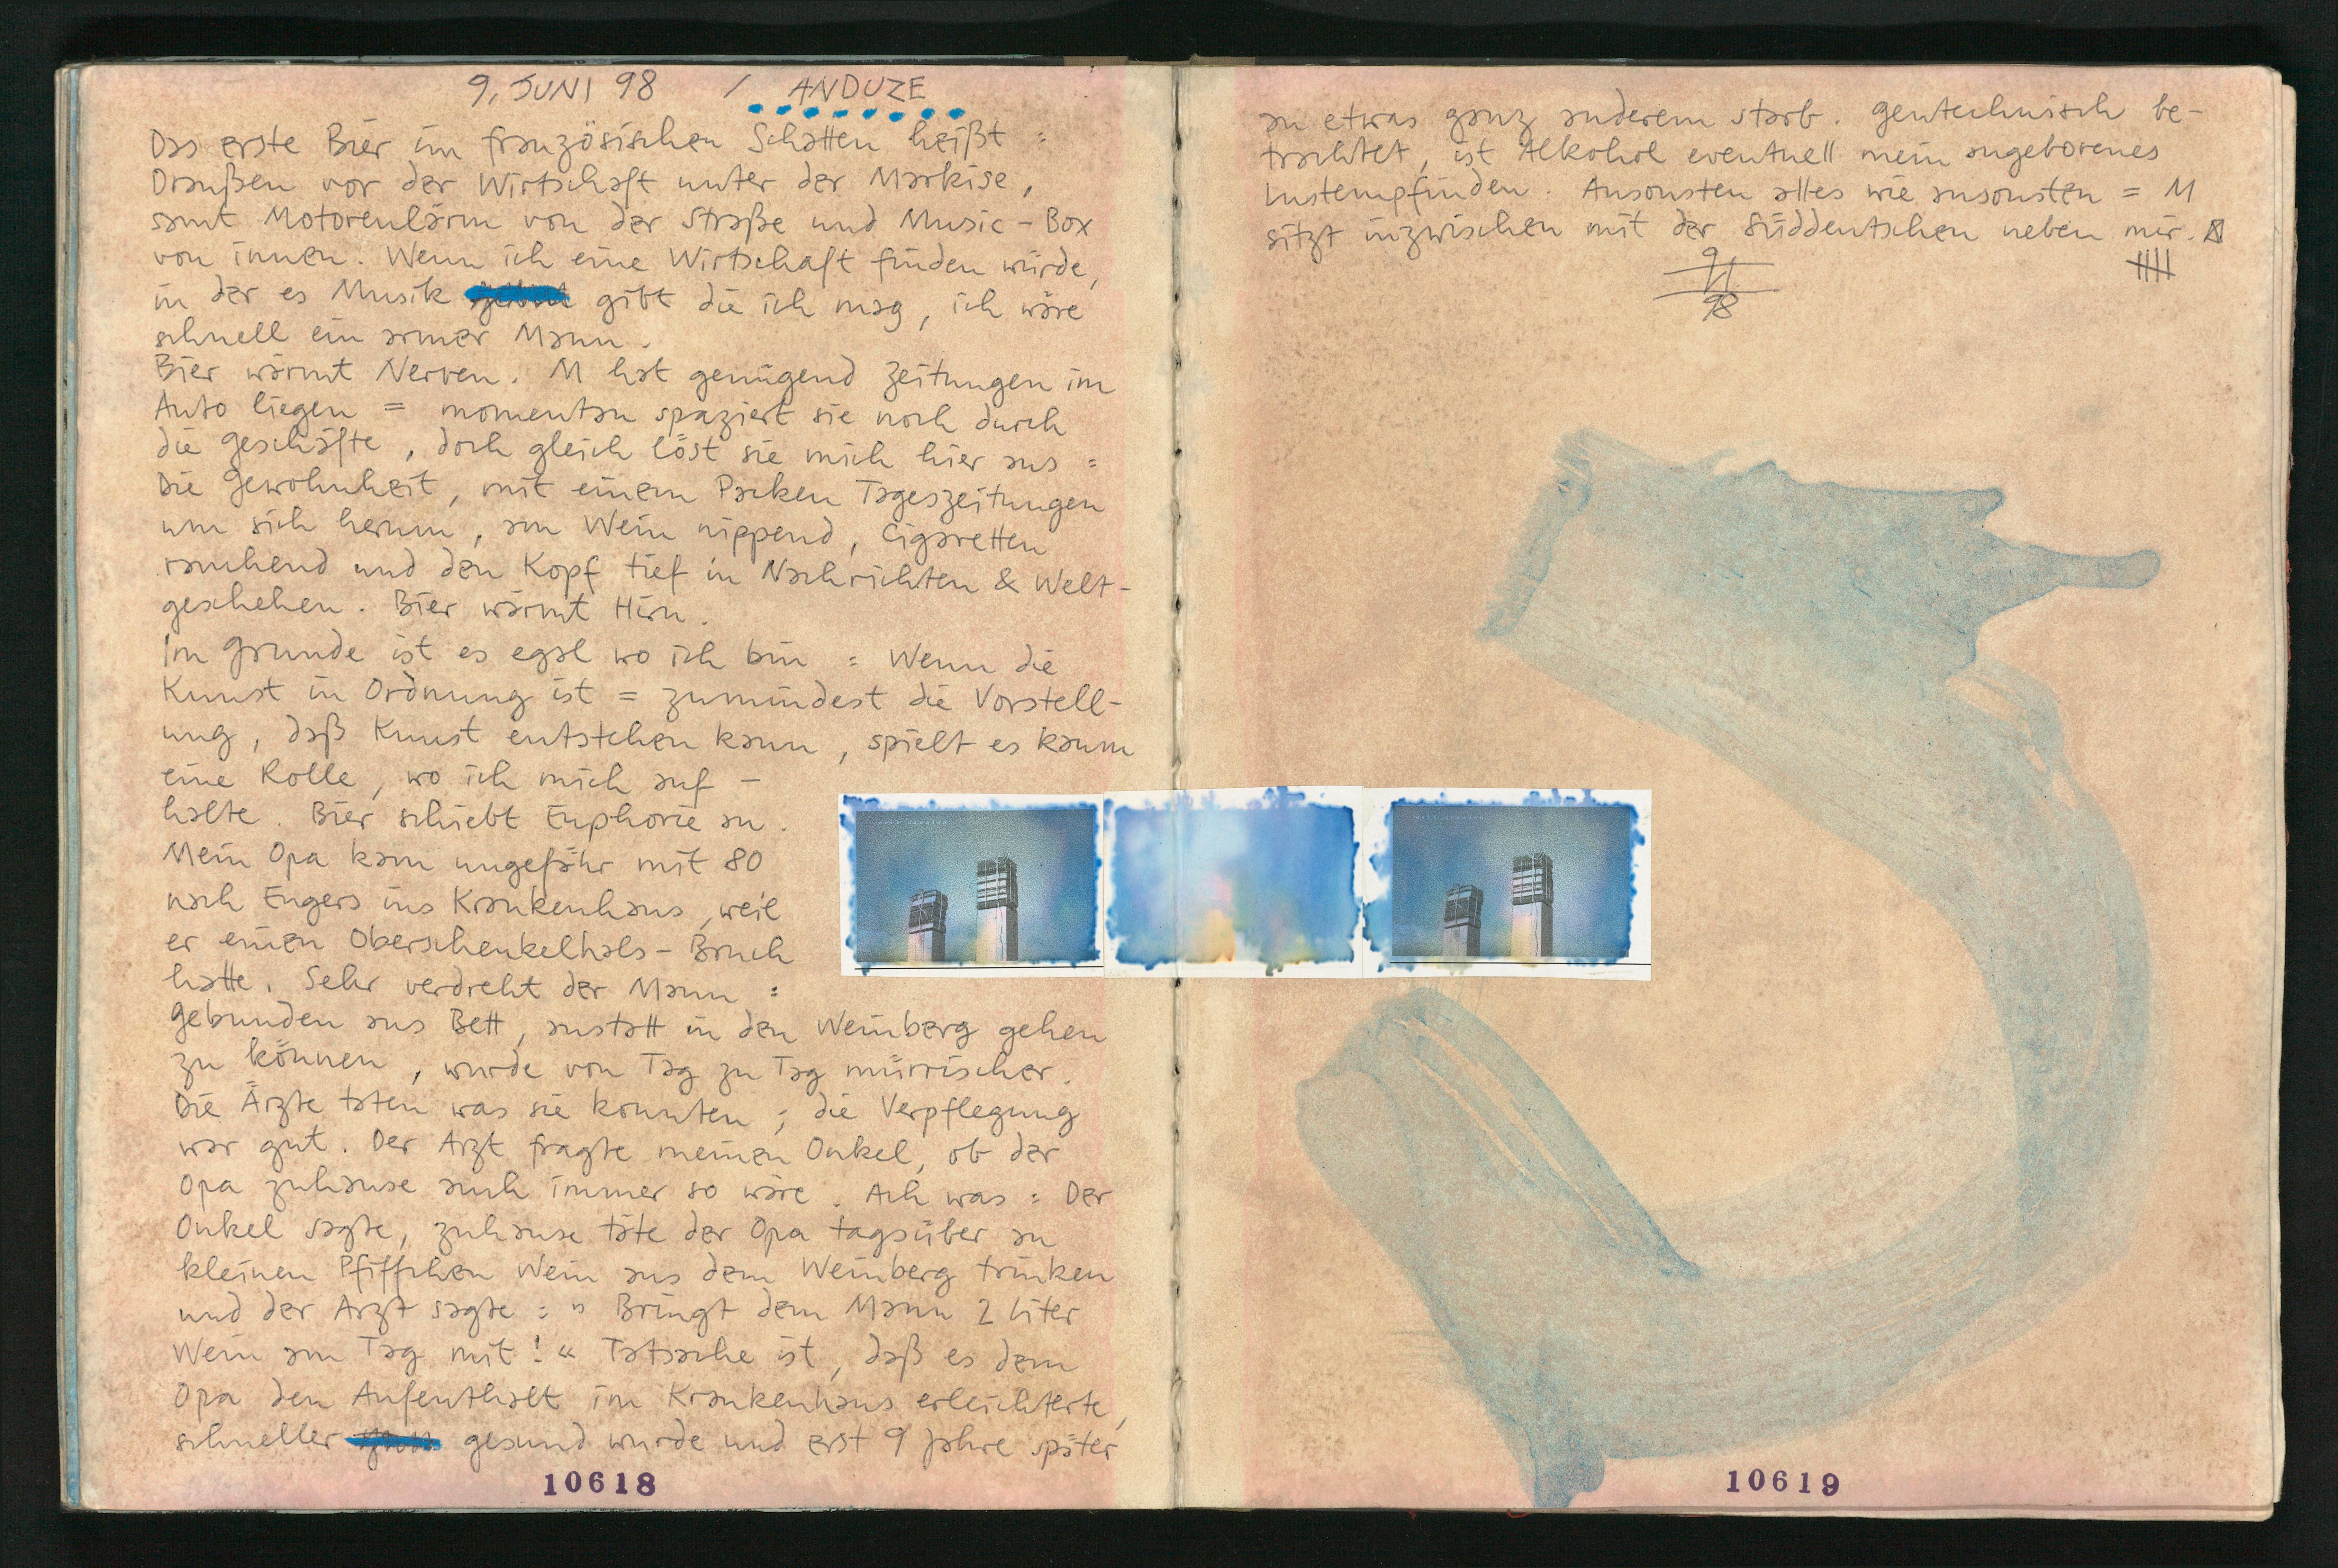 9. JUNI 98 / ANDUZE
Das erste Bier im französischen Schatten heißt =
Draußen vor der Wirtschaft unter der Markise,
samt Motorenlärm von der Straße und Music-Box
von innen. Wenn ich eine Wirtschaft finden würde,
in der es Musik gibt die ich mag, ich wäre
schnell ein armer Mann.
Bier wärmt Nerven. M hat genügend Zeitungen im
Auto liegen = momentan spaziert sie noch durch
die Geschäfte, doch gleich löst sie mich hier aus =
Die Gewohnheit, mit einem Packen Tageszeitungen
um sich herum, am Wein nippend, Cigaretten
rauchend und den Kopf tief in Nachrichten & Welt-
geschehen. Bier wärmt Hirn.
Im Grunde ist es egal wo ich bin = Wenn die
Kunst in Ordnung ist = zumindest die Vorstell-
ung, daß Kunst entstehen kann, spielt es kaum
eine Rolle, wo ich mich auf-
halte. Bier schiebt Euphorie an.
Mein Opa kam ungefähr mit 80
nach Engers ins Krankenhaus, weil
er einen Oberschenkelhals-Bruch
hatte. Sehr verdreht der Mann =
Gebunden ans Bett, anstatt in den Weinberg gehen
zu können, wurde von Tag zu Tag mürrischer.
Die Ärzte taten was sie konnten; die Verpflegung
war gut. Der Arzt fragte meinen Onkel, ob der
Opa zuhause auch immer so wäre. Ach was = Der
Onkel sagte, zuhause täte der Opa tagsüber an
kleinen Pfiffchen Wein aus dem Weinberg trinken
und der Arzt sagte: "Bringt dem Mann 2 Liter
Wein am Tag mit!" Tatsache ist, daß es dem
Opa den Aufenthalt im Krankenhaus erleichterte,
schneller gesund wurde und erst 9 Jahre später
10618
an etwas ganz anderem starb. Gentechnisch be-
trachtet, ist Alkohol eventuell mein angeborenes
Lustempfinden. Ansonsten alles wie ansonsten = M
sitzt inzwischen mit der Süddeutschen neben mir.
9
98
10619